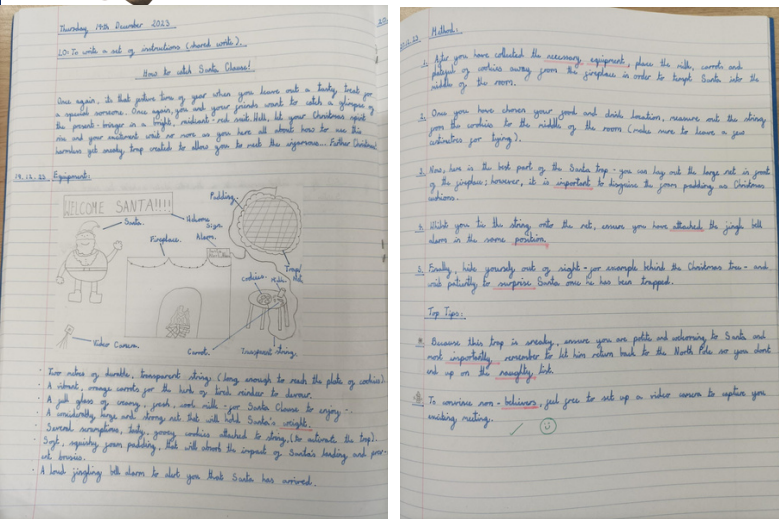 Thursday 14th December 2023
LO: To write a set of instructions (shared write).
How to catch Santa Clause!
Once again, its that festive time of year when you leave out a tasty treat for
a special someone. Once again, you and your friends want to catch a glimpse of
the present-bringer in a bright, radiant-red suit. Well, let your Christmas spirit
rise and your excitement wait no more as you hear all about how to use this
harmless yet sneaky trap created to allow you to meet the vigorous... Father Christmas
14.12.23 Equipment:
WELCOME SANTA!!!!
Santa.
Welcome
Sign
Padding
Fireplace.
Alarm.
Trap/
Net
cookies.
Milk
Video Camera.
Carrot.
Transparent string.
· Two metres of durable, transparent string. (long enough to reach the plate of cookies).
· A vibrant, orange carrots for the herd of tired reindeer to devour.
· A full glass of creamy, fresh, cool milk - for Santa Clause to enjoy.
· A considerably large and strong net that will hold Santa's weight.
· Several scrumptious, tasty, gooey cookies attached to string, (to activate the trap).
· Soft, squishy foam padding, that will absorb the impact of Santa's landing and prev-
ent bruises.
· A loud jingling bell alarm to alert you that Santa has arrived.
Method:
1. After you have collected the necessary equipment, place the milk, carrot and
plateful of cookies away from the fireplace in order to tempt Santa into the
middle of the room.
2. Once you have chosen your food and drink location, measure out the string
from the cookies to the middle of the room (make sure to leave a few
centimetres for tying).
3. Now, here is the best part of the Santa trap - you can lay out the large net in front
of the fireplace; however, it is important to disguise the foam padding as Christmas
cushions.
4. Whilst you tie the string onto the net, ensure you have attached the jingle bell
alarm in the same position.
5. Finally, hide yourself out of sight - for example behind the Christmas tree - and
wait patiently to surprise Santa once he has been trapped.
Top Tips:
Because this trap is sneaky, ensure you are polite and welcoming to Santa and
most importantly remember to let him return back to the North Pole so you dont
end up on the naughty list.
To convince non-believers, feel free to set up a video camera to capture your
exciting meeting.